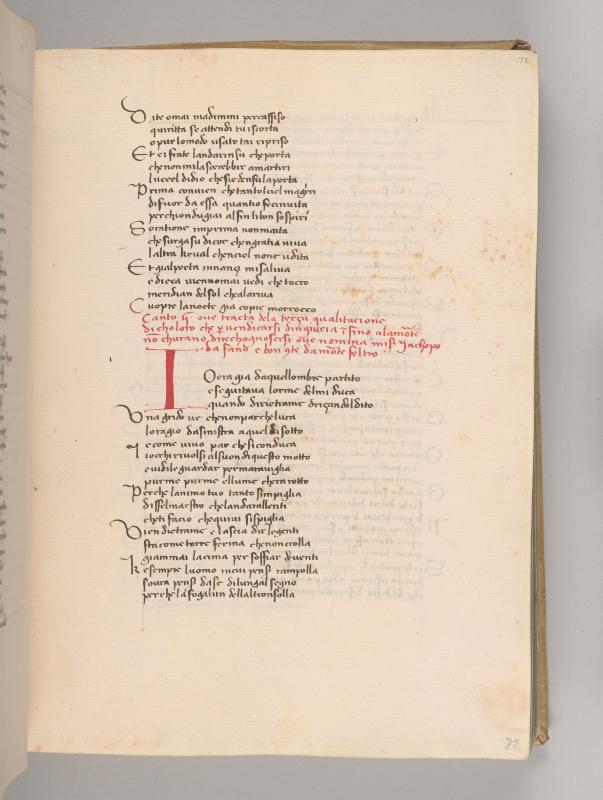 72
Dite omai madimmi percassiso
quiritta se attendi tu iscorta
o pur lomodo usato tai ripriso
Et ei frate landarinsu cheporta
chenonmilascerebbir amartiri
luccel didio chesiedensulaporta
Prima convien chetantolciel magiri
difuor da essa quantio fecinvita
perchiondugiai alfin libon sospiri
Soratione imprima nonmaita
chesurgasu dicor chengratia viva
laltra keval chenciel none udita
Et gialpoeta innançi misaliva
e dicea viennomai vedi che tocco
meridian delsol chealariva
Cuopre lanocte gia copie morrocco
Canto .v. ove tracta dela terça qualitacione
di choloro che p vendicarsi dingiuria i fino alamorte
nō churano, direchognoscersi ove nomina miss Jachopo
da fano e bon9te damōte feltro
Ioera gia daquellombre partito
e seguitava lorme delmi duca
quando dirietrame driçandoldito
Una grido ve chenonparcheluca
loragio dasinistra aquel disotto
e come vivo par chesiconduca
Iocchi rivolsi alsuon diquesto motto
evidile guardar permaraviglia
pur me pur me ellume chera rotto
Perche lanimo tuo tanto simpiglia
disselmaestro chelandarallenti
cheti facio chequivi sispiglia
Vien dietrame e lascia dir legenti
sta come torre ferma chenoncrolla
giammai lacima per soffiar deventi
Kesempre luomo incui pensr rampolla
sovra pensr dase dilungal segno
perche lafogalun dellaltronsolla
72